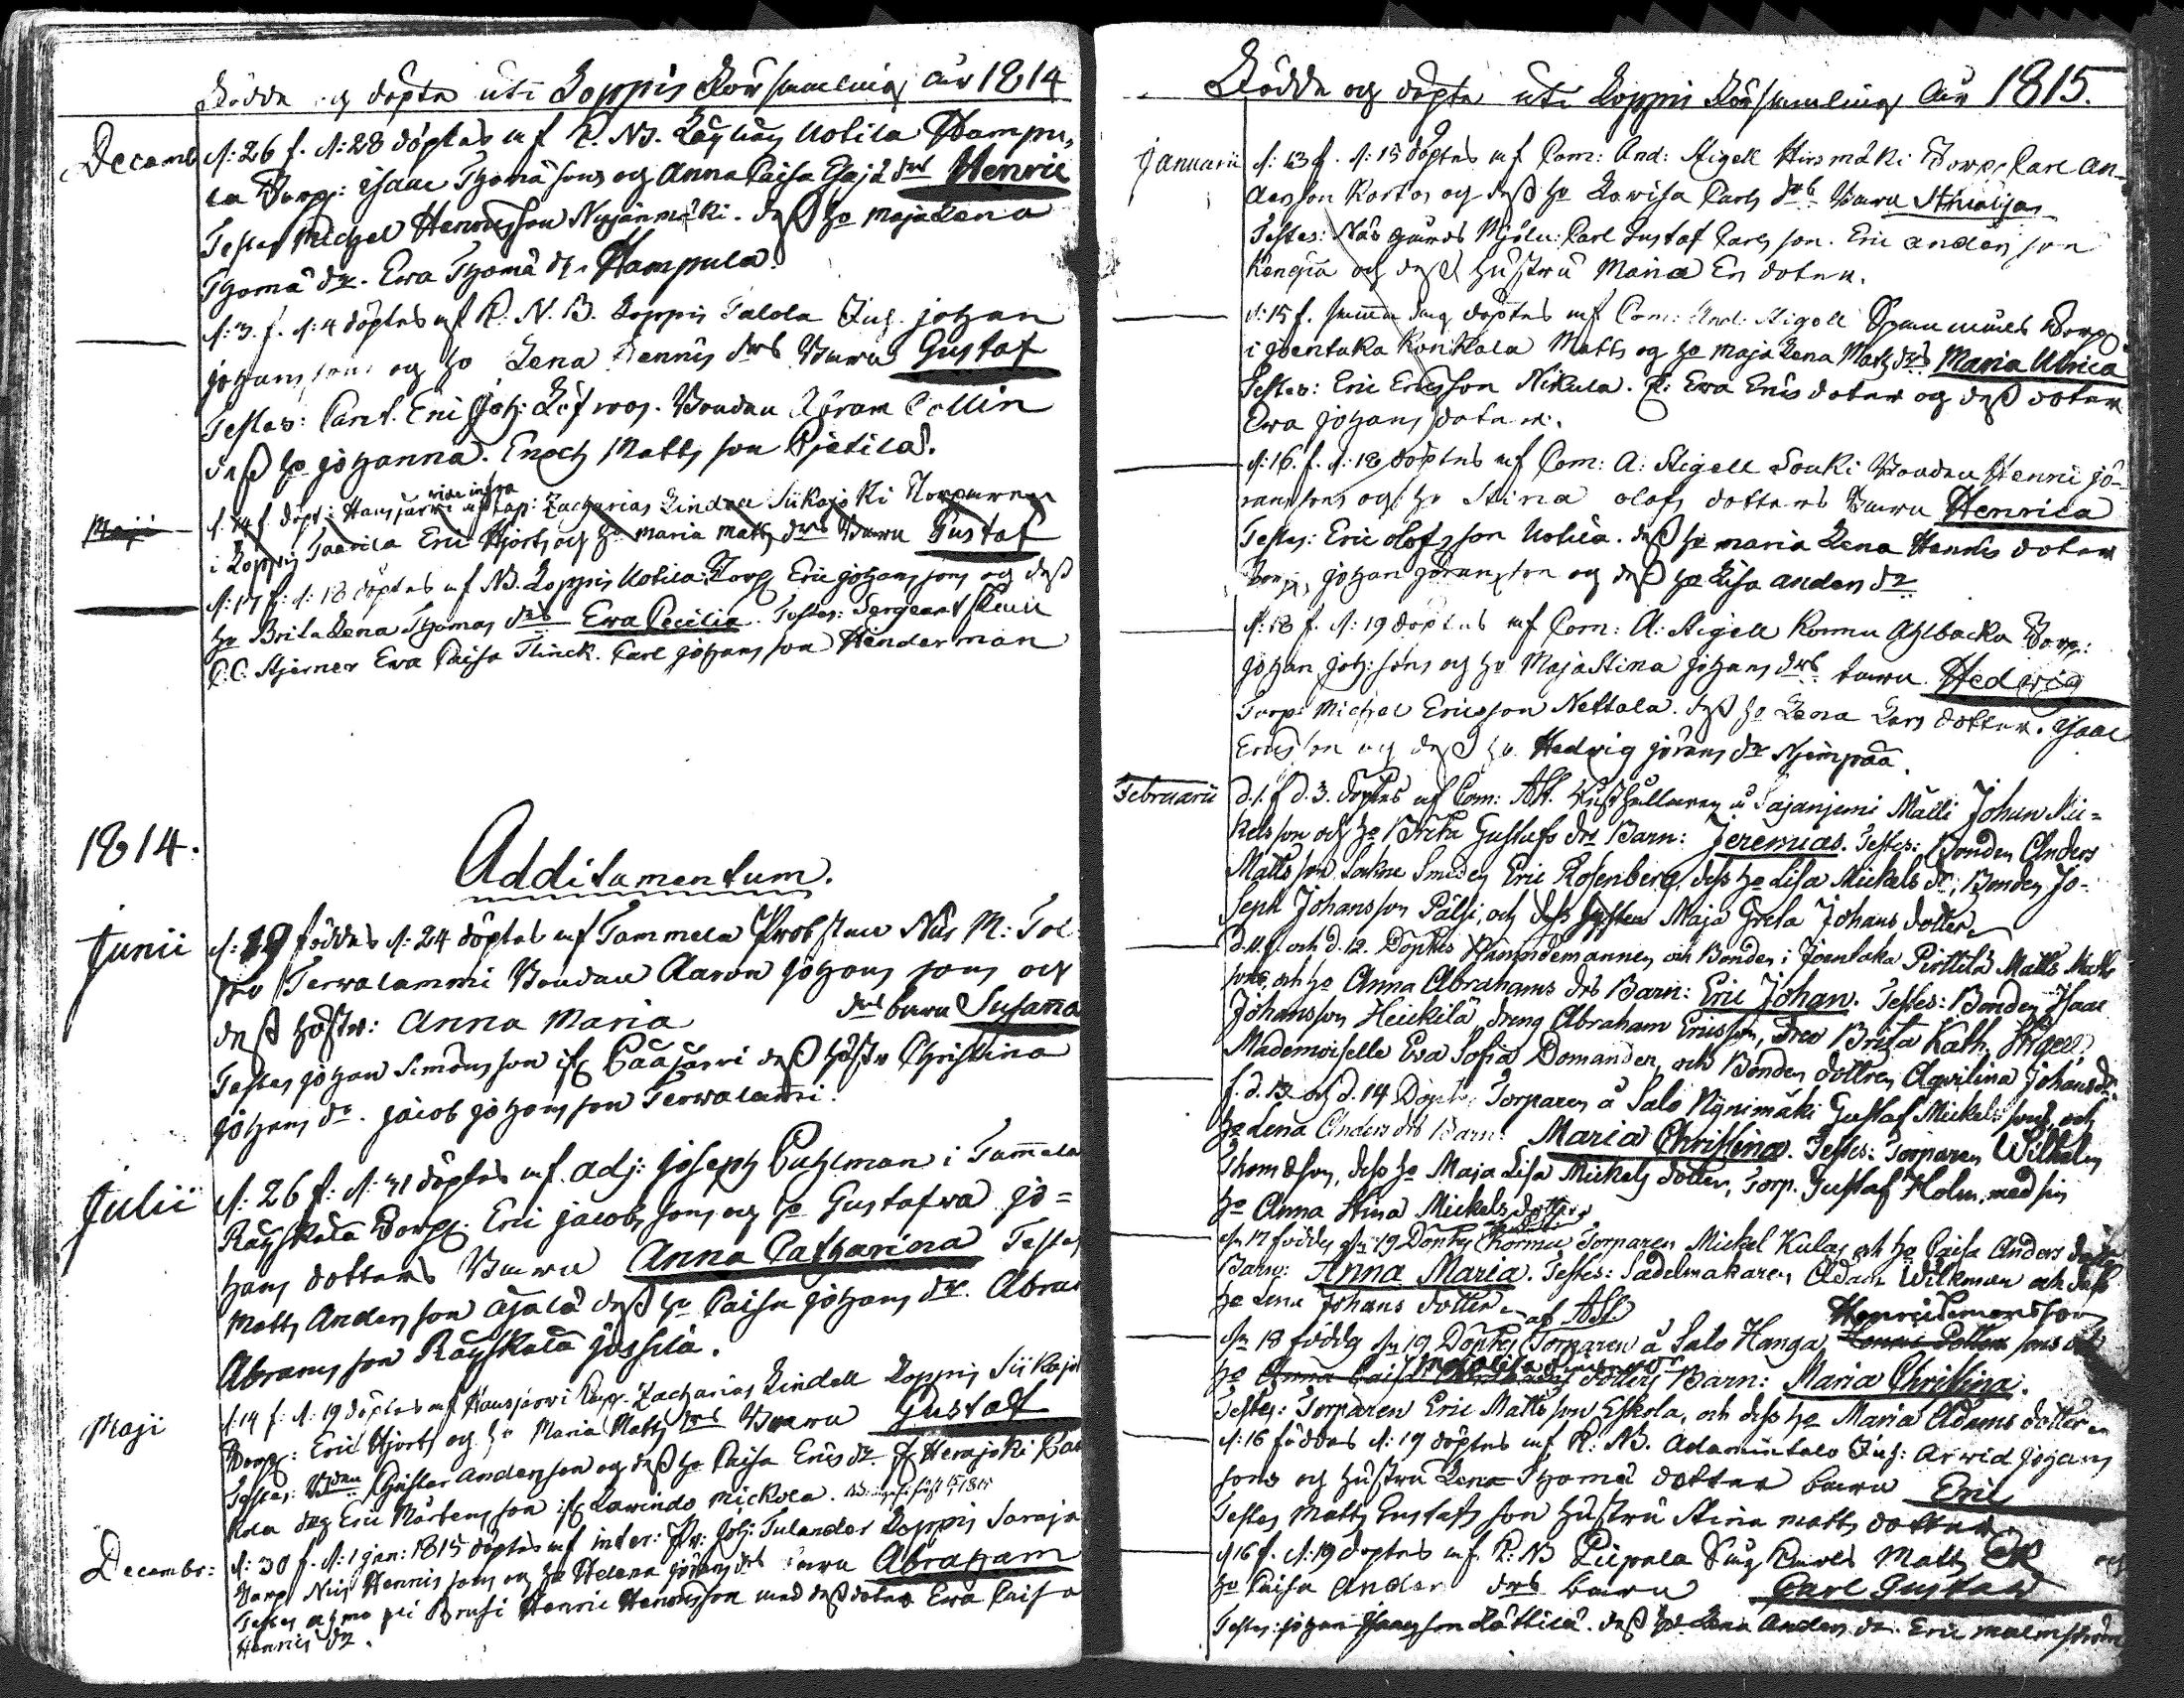 Födde og döpte uti Loppis Församling år 1814
Decemb d: 26 f. d: 28 döptes af P. NB. Läyliäis Uotila Hampu-
la Torp: Isaac Thomæ sons og Anna Caisa Isajæ drs Henric
Testes Michel Henricsson Nyjänmäki. dess ho Maja Lena
Thomæ dr. Ewa Thomæ dr. Hampula.
d: 3. f. d: 4 döptes af P. N.B. Loppis Talola Inh. Johan
Johans sons og ho Lena Hennis drs Barn Gustaf
Testes: Cant. Eric Joh: Löfroos. Bonden Göran Collin
dess ho Johanna. Enoch Matts son Pietilä.
Maji
vide infra
d. 14 f. döpt: Hausjärvi af Cap: Zacharias Lindell Siikajoki Torparen
i Loppis Taarila Eric Hjorts og ho Maria Matts drs Barn Gustaf
d: 17 f: d: 18 döptes af NB. Loppis Uotila Torp Eric Johans sons og dess
ho Brita Lena Thomas drs Ewa Cecilia. Testes: Sergeant
C.C. Stjerner Ewa Caisa Flinck. Carl Johansson Hinderman
1814.
Additamentum.
Junii d: 19 föddes d: 24 döptes af Tammela Probsten Nils M: Tol
po Terwalammi Bonden Aaron Johans sons och
dess hustr: Anna Maria drs barn Susanna
Testes Johan Simonsson ifr Pääjärvi dess hustr Christina
Johans dr. Jacob Johansson Terwalammi.
Julii d: 26 f: d: 31 döptes af. adj: Joseph Cuhlman i Tammela
Räyskälä Torp: Eric Jacobs sons og ho Gustafwa Jo=
hans dotters Barn Anna Catharina Testes
Matts Andersson Ajala dess ho Caisa Johans dr. Abra
Abrams son Räyskälä Jussila.
Maji d: 14 f: d: 19 döptes af Hausjärvi Cap. Zacharias Lindell Loppis Siikajok
Torp: Eric Hjorts og ho Maria Matts drs Barn Gustaf
Testes: Bden Christer Andersson og dess ho Caisa Erics dr. Herajoki
kola dreng Eric Mårtensson ifr Lavindo Mickola.
Decembr: d: 30 f. d: 1 Jan: 1815 döptes af inter: Pr: Joh: Tulander Loppis Saraja
Torp Nils Hennis sons og ho Helena Jörans drs Barn Abraham
Testes Brusi Henric Henricsson med dess dotter Ewa Caisa
Hennis dr.
Födde og döpte uti Loppis Församling år 1815.
Januarii d: 13 f. d: 15 döptes af Com: And: Aigell Hirsmäki Torp: Carl An-
dersson Kortes og dess ho Lowisa Carls drs Barn Mathias
Testes: Näs gårds Mjöln: Carl Gustaf Carls son. Eric Anders son
Kengiä og dess hustru Maria Ers doter.
d: 15 f. samma dag döptes af Com: And: Aigell Spanmåls Torp
i Joentaka Konkala Matts og ho Maja Lena Matts drs Maria Ulrica
Testes: Eric Ericsson Nikula. P: Ewa Erics doter og dess doter
Ewa Johans doter.
d: 16. f. d: 18 döptes af Com: A: Aigell Souki Bonden Henric Jö-
ransons og ho Stina Olofs dotters Barn Henrica
Testes: Eric Olofsson Uotila. dess ho Maria Lena Hennis doter
Johan Jöransson og dess ho Lisa Anders dr
d: 18 f. d: 19 döptes af Com: A: Aigell Kormu Ahlbacka Torp:
Johan Joh: sons og ho Maja Stina Johans drs barn Hedwig
Torp: Michel Ericsson Nettala. dess ho Lena Lars dotter. Isaac
Ericsson og dess ho Hedwig Jörans dr Njimpää.
Februarii d. 1. f d. 3. döptes af Com: Abf. Husshållaren å Sajaniemi Målli Johan Mi=
kelsson och ho Brita Gustafs drs Barn: Jeremias. Testes: Bonden Anders
Mattsson Sokne Smeden Eric Rosenberg, dess ho Lisa Mickels dr, Bonden Jo-
seph Johansson Pälsi, och dess Syster Maja Greta Johans dotter
d. 11. f. och d. 12. Döptes Nämndemannen och Bonden i Joentaka Pirttilä Matts Matts
sons, och ho Anna Abrahams drs Barn: Eric Johan. Testes: Bonden Isaac
Johansson Heickilä, dreng Abraham Ericsson, Brita Kath. Aigell,
Mademoiselle Eva Sofia Domander, och Bonden dottren Aqvilina Johansdr.
f. d. 13 och d. 14 Döptes Torparen å Salo Nynimäki Gustaf Mickels sons, och
ho Lena Anders drs Barn: Maria Christina. Testes: Torparen Wilhelm
Thomæson, dess ho Maja Lisa Mickels dotter, Torp. Gustaf Holm, med sin
ho Anna Stina Mickels dotter
den 17 föddes den 19 Döptes Kormu Torparen Mickel Kulas och ho Caisa Anders dotters
Barn: Anna Maria. Testes: Sadelmakaren Adam Wikman och dess
ho Lena Johans dotter
af Abf. Henric Simonsson
den 18 föddes den 19 Döptes Torparen å Salo Hanga sons och
ho Anna Caisa Maja Lisa dotters Barn: Maria Christina.
Testes: Torparen Eric Mattsson Eskola, och dess ho Maria Adams dotter
d: 16 föddes d: 19 döptes af P: NB. Adamintalo Inh: Arvid Johans
sons og hustru Lena Thomæ dotter barn Eric
Testes Matts Gustafs son hustru Stina Matts dotter
d 16 f. d: 19 döptes af P: NB Piepala Matts og
ho Caisa Anders drs barn Carl Gustaf
Testes: Johan Isaacsson Kättilä. dess ho Lena Anders dr. Eric Malmström